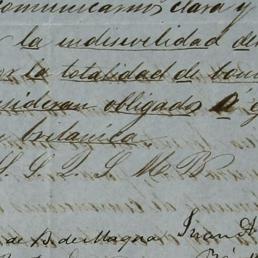 comunicamos clara y
la indisivilidad de
la totalidad de
sideran obligado á
britanica
S. S. Q. S. M. B
de A. de Magna Juan A.